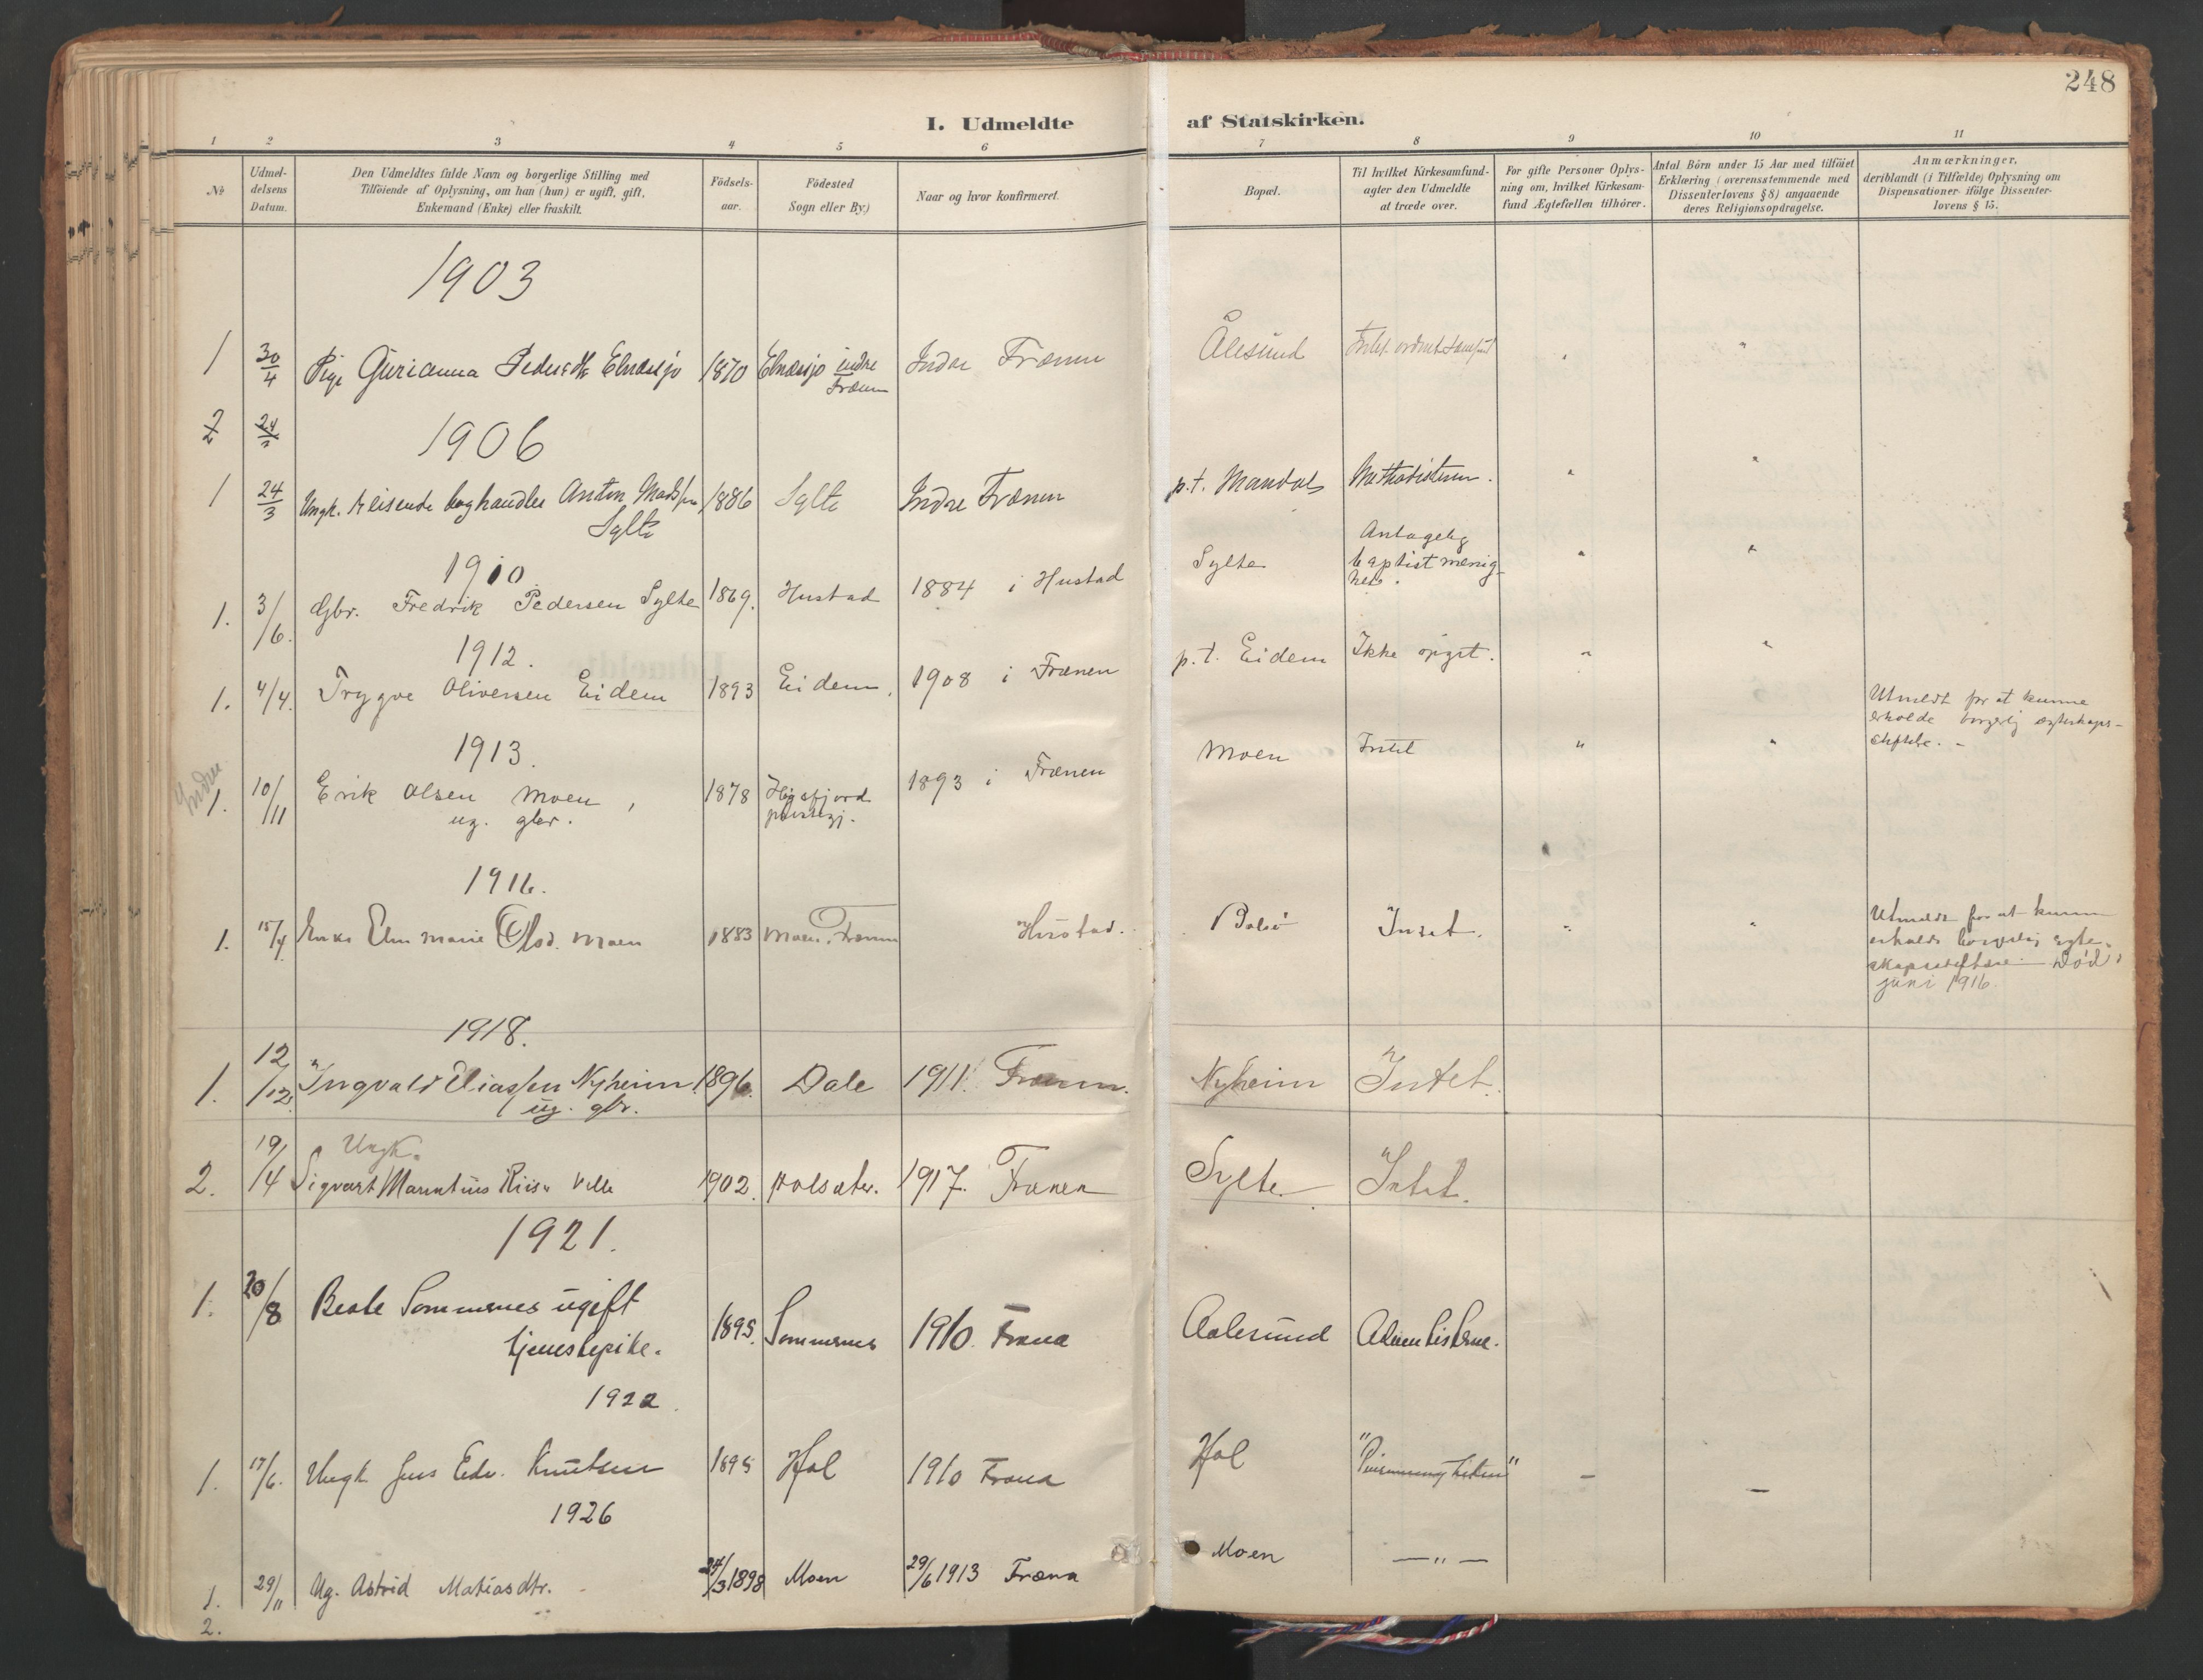 248
I. Udmeldte af Statskirken.
1 2 3 4 5 6 7 8 9 10 11
№
Udmel-
delsens
Datum.
Den Udmeldtes fulde Navn og borgerlige Stilling med
Tilföiende af Oplysning, om han (hun) er ugift, gift,
Enkemand (Enke) eller fraskilt.
Födsels-
aar.
Födested
Sogn eller By)
Naar og hvor konfirmeret.
Bopæl.
Til hvilket Kirkesamfund-
agter den Udmeldte
at træde over.
For gifte Personer Oplys-
ning om, hvilket Kirkesam-
fund Ægtefællen tilhörer.
Antal Börn under 15 Aar med tilföiet
Erklæring (overensstemmende med
Dissenterlovens § 8) angaaende
deres Religionsopdragelse.
Anmærkninger,
deriblandt (i Tilfælde) Oplysning om
Dispensationer ifölge Dissenter-
lovens § 15.
1903
1 30/4 Pige Gurianna Pedersdtr Elnæsjo 1870 Elnæsjo indre Indre Frænen Ålesund
Frænen
2 24/3
1906
1 24/3 Ungk. Reisende boghandler Anton Madssen 1886 Sylte Indre Frænen p.t. Mandal Methodisterne.
Sylte
1910
1. 3/6. Gbr. Fredrik Pedersen Sylte 1869. Hustad 1884 i Hustad Sylte Antagelig
baptistmenig-
het.
1912.
1. 4/4. Trygve Oliversen Eidem 1893 Eidem. 1908 i Frænen p.t. Eidem Ikke opgit.
1913.
Indre
1. 10/11 Erik Olsen Moen, 1878 1893 i Frænen Moen Intet Utmeldt for at kunne
erholde borgerlig egteskaps-
stiftelse. -
ug. gbr. prestegj.
1916.
1. 15/4 Enke Marie Olsd. Moen 1883 Moen, Frænen Hustad. Bolsö Intet. Utmeldt for at kunne
erholde borgerlig egte-
skapsstiftelse. Död i
juni 1916.
1918.
1. 12/12. Ingvald Eliassen Nyheim. 1896. Dale 1911. Frænen. Nyheim Intet.
ug. gbr.
Ungk.
2. 19/4 Sigvart Marentius Riise 1902. 1917. Frænen Sylte. Intet.
1921.
1. 20/8 Beate Sommernes ugift
tjenestepike. 1895. Sommernes 1910. Fræna Aalesund Adventisterne.
1922.
1. 17/6. Ungk. Jens Edv. Knutsen 1895 Hol 1910 Fræna Hol -
1926
1. 29/11 Ug. Astrid Matiasdtr. 24/3 1898 Moen 29/6 1913 Fræna Moen — " —
2.